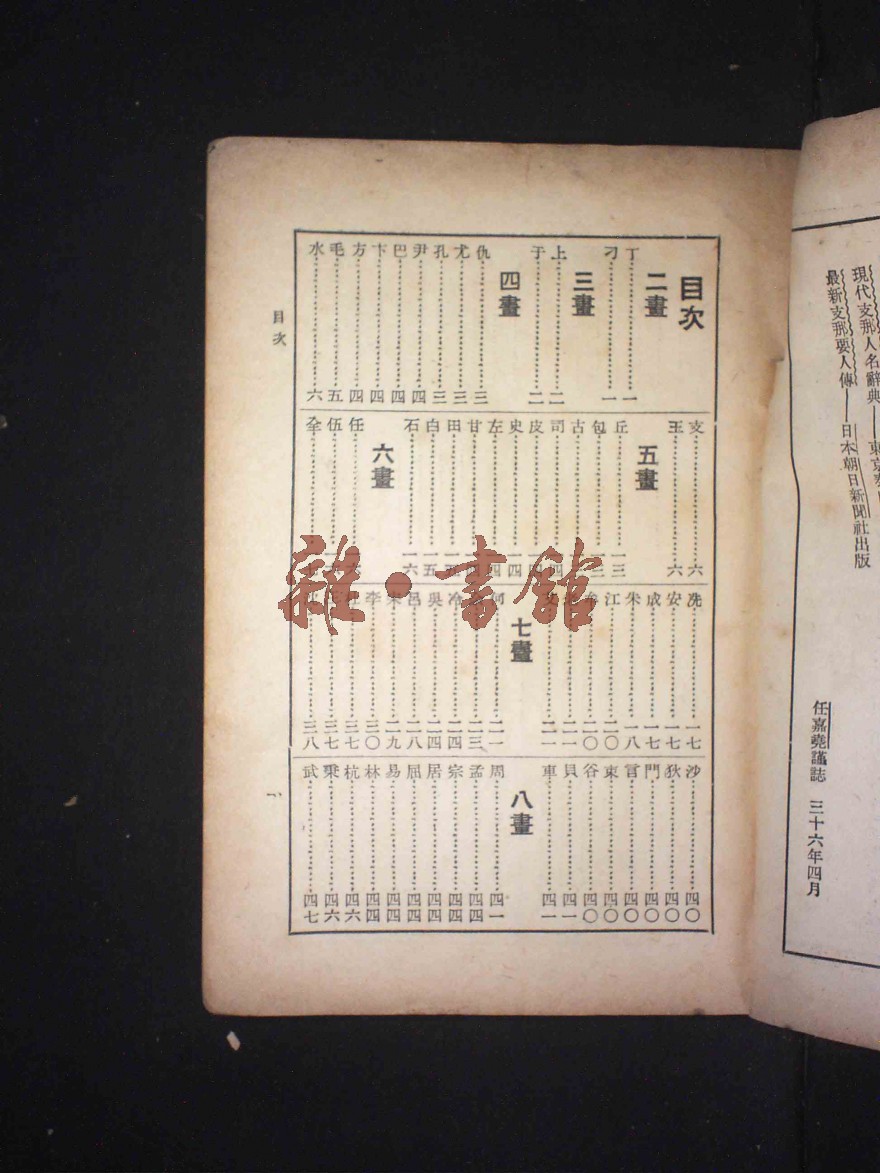 現代支那人名辭典——東京
最新支那要人傳——日本朝日新聞社出版
任嘉堯謹誌 三十六年四月
目次
二畫
丁……一
刁……一
三畫
上……二
于……二
四畫
仇……三
尤……三
孔……三
尹……四
巴……四
卞……四
方……四
毛……五
水……六
支……六
王……六
五畫
丘……一三
包……
古……
司……
皮……
史……一四
左……一四
甘……
田……
白……一五
石……一六
六畫
任……
伍……
全……
冼……一七
安……一七
成……一七
朱……一八
江……二〇
……二〇
……二一
艾……二一
七畫
何……二一
……二三
冷……二四
吳……二四
呂……二八
宋……二九
李……三〇
杜……三七
……三七
沈……三八
沙……四〇
狄……四〇
門……四〇
言……四〇
束……四〇
谷……四〇
貝……四一
車……四一
八畫
周……四一
孟……四四
宗……四四
居……四四
屈……四四
易……四四
林……四四
杭……四六
……四六
武……四七
目次
一
雜·書館